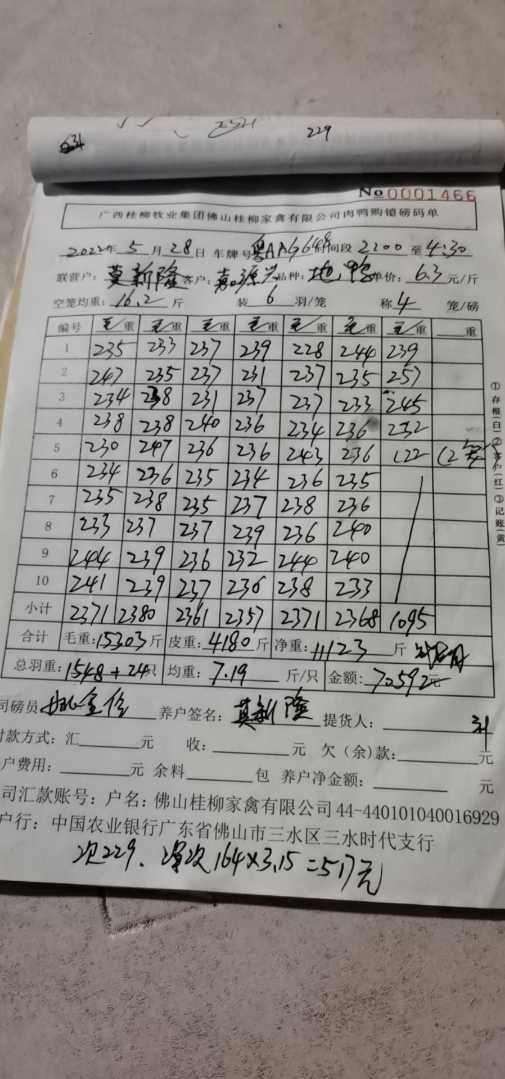 229
No 0001466
广西桂柳牧业集团佛山桂柳家禽有限公司肉鸭购销磅码单
2022年 5 月 28 日 车牌号 时间段 2100 至 4:30
联营户: 莫新隆 客户: 嘉源兴 品种: 单价: 6.3 元/斤
空笼均重: 16.2 斤 装 6 羽/笼 称 4 笼/磅
编号 毛重 毛重 毛重 毛重 毛重 毛重 毛重 重
1 235 233 237 239 228 244 239
2 247 235 237 231 237 235 257
3 234 238 231 237 237 233 245
4 238 238 240 236 234 236 232
5 230 247 236 236 243 236 122 (2笼)
6 234 236 235 234 236 235
7 235 238 235 237 238 236
8 233 237 237 239 236 240
9 244 239 236 232 244 240
10 241 239 237 236 238 233
小计 2371 2380 2361 2357 2371 2368 1095
合计 毛重: 15303 斤 皮重: 4180 斤 净重: 11123 斤
总羽重: 1548+24只 均重: 7.19 斤/只 金额: 70592元
司磅员 养户签名: 莫新隆 提货人:
付款方式: 汇 元 收: 元 欠(余)款: 元
户费用: 元 余料 包 养户净金额: 元
司汇款账号: 户名: 佛山桂柳家禽有限公司 44-440101040016929
户行: 中国农业银行广东省佛山市三水区三水时代支行
次229、 164×3.15=517元
①存根(白)②客户(红)③记账(黄)